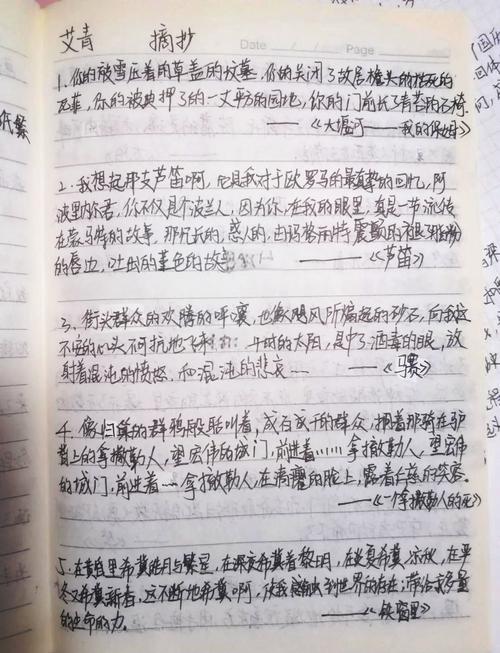 艾青 摘抄
Date Page
1. 你的被雪压着的草盖的坟墓，你的关闭了故居檐头的枯死的
瓦菲，你的被典押了的一丈平方的园地，你的门前长了青苔的石椅，
——《大堰河——我的保姆》
2. 我想起那支芦笛啊，它是我对于欧罗巴的最真挚的回忆，阿
波里内尔君，你不仅是个波兰人，因为你，在我的眼里，真是一节流传
在蒙马特的故事，那冗长的，惑人的，由玛格丽特震颤的褪了
的唇边，吐出的堇色的故事 ——《芦笛》
3. 街头群众的欢腾的呼嚷，也像飓风所煽起的砂石，向我这
不安的心头不可抗地飞来 午时的太阳，是中了酒毒的眼，放
射着混沌的愤怒，和混沌的悲哀… ——《聆》
4. 像归巢的群鸦般聒叫着，成百成千的群众，拥着那骑在驴
背上的拿撒勒人，望宏伟的城门，前进着……拿撒勒人，望宏伟
的城门，前进着…拿撒勒人，在清癯的脸上，露着仁慈的笑容。
——《一个拿撒勒人的死》
5. 在黄昏里希冀皓月与繁星，在深夜希冀着黎明，在炎夏希冀凉秋，在严
冬又希冀新春，这不断地希冀啊，使我感触到世界的存在；带给我多量
的生命的力。 ——《铁窗里》